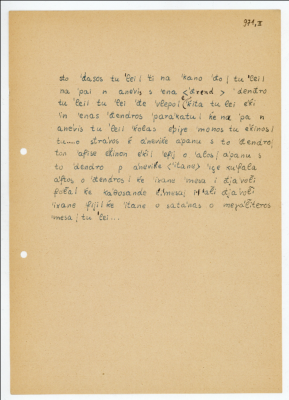 971, II
do dasos tu 'lei | ti na 'kano 'do | tu 'lei |
na 'pai n a'nevis s 'ena <'dend> 'dendro
tu 'lei | tu 'lei de 'vlepo | 'kita tu 'lei e'ki
'in 'enas 'dendros para'katu | ke na 'pa n
a'nevis tu 'lei | 'kolas 'epire 'monos tu e'kinos |
tu'mo stra'vos e a'nevike a'panu s to 'dendro |
ton 'afise e'kinon e'ki | 'efij o 'alos | a'panu s
tu 'dendro p a'nevike <'itano> 'ixe ku'fala
'aftos o 'dendros | ke 'ixane 'mesa i 'djavoli
fo'lia | ke ka'θosande 'mesa | 'ali 'djavoli
'ixane 'fiji | ke 'itane o sata'nas o meɣa'literos
'mesa | tu 'lei ...